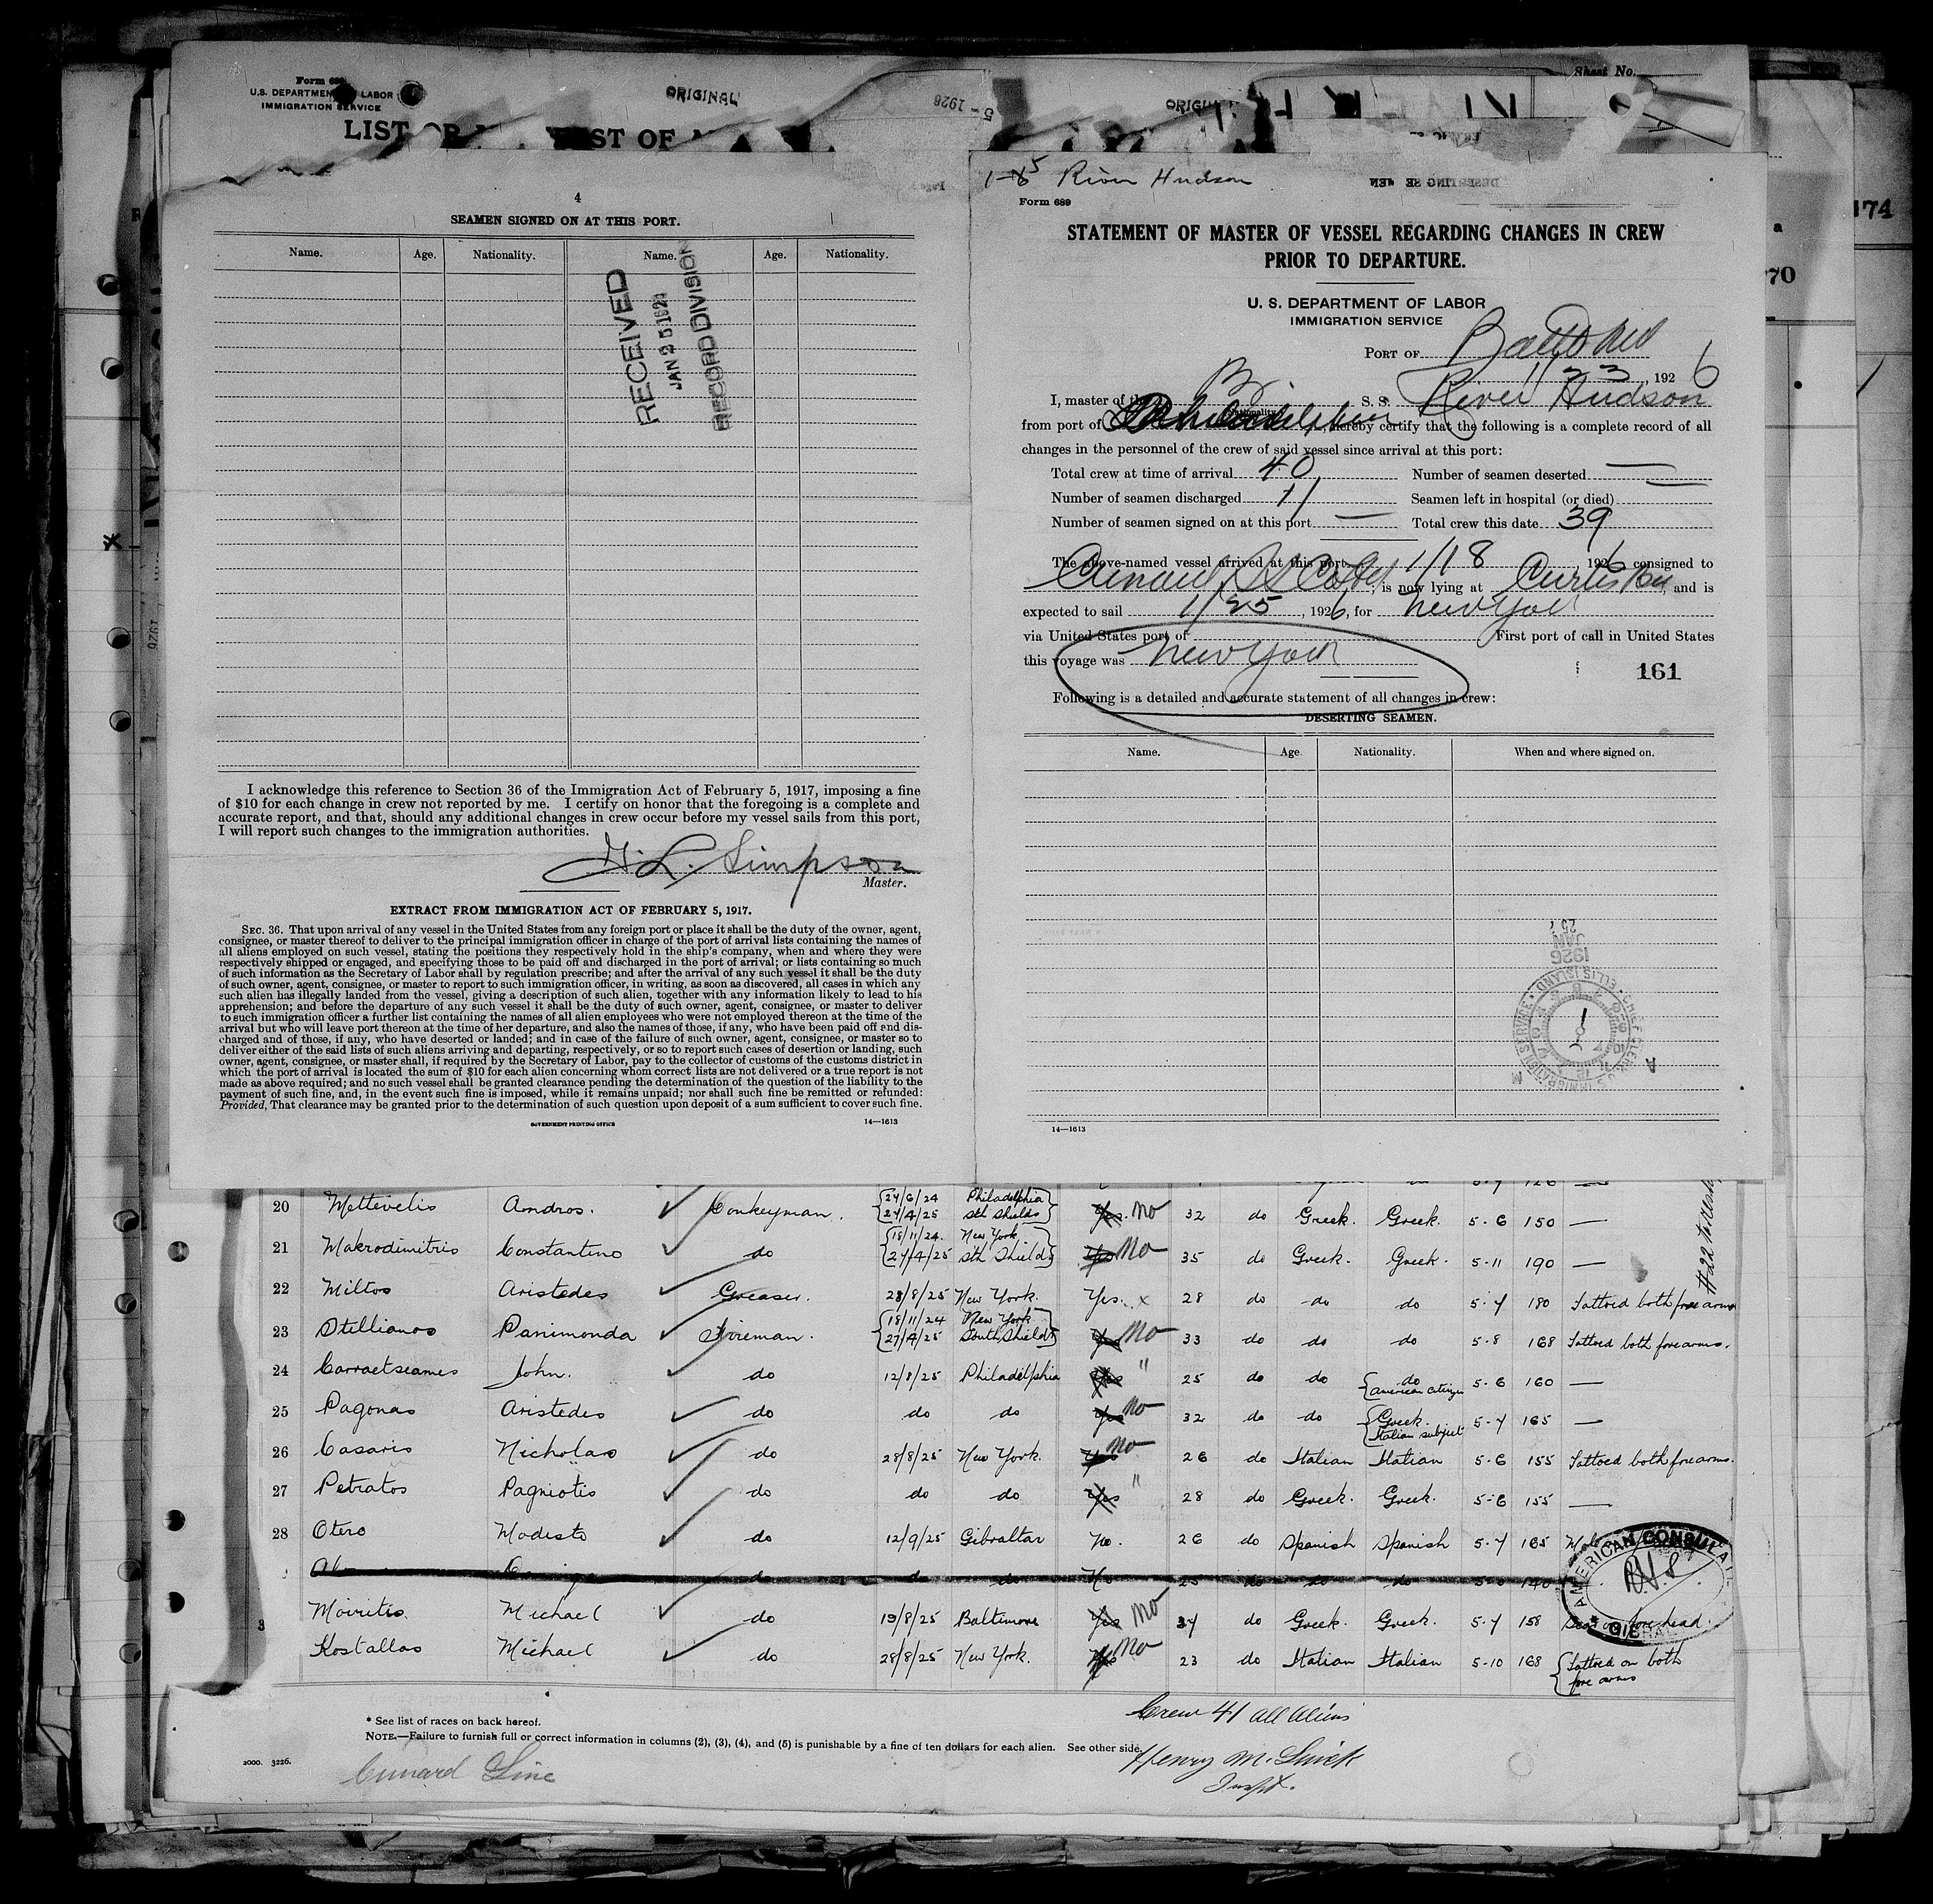 Form 689
U.S. DEPARTMENT LABOR
IMMIGRATION SERVICE
ORIGINAL
5 - 1926
Sheet No.
LIST ST OF
174
70
4
SEAMEN SIGNED ON AT THIS PORT.
Name. Age. Nationality. Name. Age. Nationality.
RECEIVED
JAN 25
RECORD DIVISION
I acknowledge this reference to Section 36 of the Immigration Act of February 5, 1917, imposing a fine
of $10 for each change in crew not reported by me. I certify on honor that the foregoing is a complete and
accurate report, and that, should any additional changes in crew occur before my vessel sails from this port,
I will report such changes to the immigration authorities.
H. L. Simpson
Master.
EXTRACT FROM IMMIGRATION ACT OF FEBRUARY 5, 1917.
SEC. 36. That upon arrival of any vessel in the United States from any foreign port or place it shall be the duty of the owner, agent,
consignee, or master thereof to deliver to the principal immigration officer in charge of the port of arrival lists containing the names of
all aliens employed on such vessel, stating the positions they respectively hold in the ship's company, when and where they were
respectively shipped or engaged, and specifying those to be paid off and discharged in the port of arrival; or lists containing so much
of such information as the Secretary of Labor shall by regulation prescribe; and after the arrival of any such vessel it shall be the duty
of such owner, agent, consignee, or master to report to such immigration officer, in writing, as soon as discovered, all cases in which any
such alien has illegally landed from the vessel, giving a description of such alien, together with any information likely to lead to his
apprehension; and before the departure of any such vessel it shall be the duty of such owner, agent, consignee, or master to deliver
to such immigration officer a further list containing the names of all alien employees who were not employed thereon at the time of the
arrival but who will leave port thereon at the time of her departure, and also the names of those, if any, who have been paid off and dis-
charged and of those, if any, who have deserted or landed; and in case of the failure of such owner, agent, consignee, or master so to
deliver either of the said lists of such aliens arriving and departing, respectively, or so to report such cases of desertion or landing, such
owner, agent, consignee, or master shall, if required by the Secretary of Labor, pay to the collector of customs of the customs district in
which the port of arrival is located the sum of $10 for each alien concerning whom correct lists are not delivered or a true report is not
made as above required; and no such vessel shall be granted clearance pending the determination of the question of the liability to the
payment of such fine, and, in the event such fine is imposed, while it remains unpaid; nor shall such fine be remitted or refunded:
Provided, That clearance may be granted prior to the determination of such question upon deposit of a sum sufficient to cover such fine.
GOVERNMENT PRINTING OFFICE
14—1613
River Hudson
Form 689
STATEMENT OF MASTER OF VESSEL REGARDING CHANGES IN CREW
PRIOR TO DEPARTURE.
U. S. DEPARTMENT OF LABOR
IMMIGRATION SERVICE
PORT OF Balto Md
1/23, 1926
I, master of the Br S. S. River Hudson
from port of Philadelphia, hereby certify that the following is a complete record of all
changes in the personnel of the crew of said vessel since arrival at this port:
Total crew at time of arrival 40 Number of seamen deserted —
Number of seamen discharged 1 Seamen left in hospital (or died) —
Number of seamen signed on at this port — Total crew this date 39
The above-named vessel arrived at this port 1/18 1926 consigned to
Cunard SS Co, is now lying at Curtis Bay, and is
expected to sail 1/25, 1926, for New York
via United States port of First port of call in United States
this voyage was New York
161
Following is a detailed and accurate statement of all changes in crew:
DESERTING SEAMEN.
Name. Age. Nationality. When and where signed on.
1926
JAN
25
14—1613
20 Mettevelis Andros. Donkeyman. 24/6/24 Philadelphia 27/4/25 Sth Shields Yes. No 32 do Greek. Greek. 5-6 150 —
21 Makrodimitris Constantino do 18/11/24. New York 27/4/25 Sth Shields Yes No 35 do Greek. Greek. 5-11 190 —
22 Miltos Aristedes Greaser. 28/8/25 New York. Yes. x 28 do do do 5-7 180 Tattoed both fore arms
23 Stellianos Panimonda Fireman. 18/11/24 New York 27/4/25 South Shields Yes No 33 do do do 5-8 168 Tattoed both forearms.
24 Carraetseames John. do 12/8/25 Philadelphia Yes " 25 do do do American Citizen 5-6 160 —
25 Pagonas Aristedes do do do Yes No 32 do do Greek. Italian subject 5-7 165 —
26 Casaris Nicholas do 28/8/25 New York. Yes No 26 do Italian Italian 5-6 155 Tattoed both forearms.
27 Petratos Pagniotis do do do Yes " 28 do Greek. Greek. 5-6 155 —
28 Otero Modesto do 12/9/25 Gibraltar No. 26 do Spanish Spanish 5-7 165
do do do No 25 do do do 140
3 Moiritis Michael do 19/8/25 Baltimore Yes No 34 do Greek. Greek. 5-7 158 forehead.
Kostallas Michael do 28/8/25 New York. No 23 do Italian Italian 5-10 168 Tattoed on both fore arms
AMERICAN CONSULA
* See list of races on back hereof.
NOTE.—Failure to furnish full or correct information in columns (2), (3), (4), and (5) is punishable by a fine of ten dollars for each alien. See other side.
Crew 41 all aliens
2000. 3226.
Cunard Line
Henry M.
Inspt.